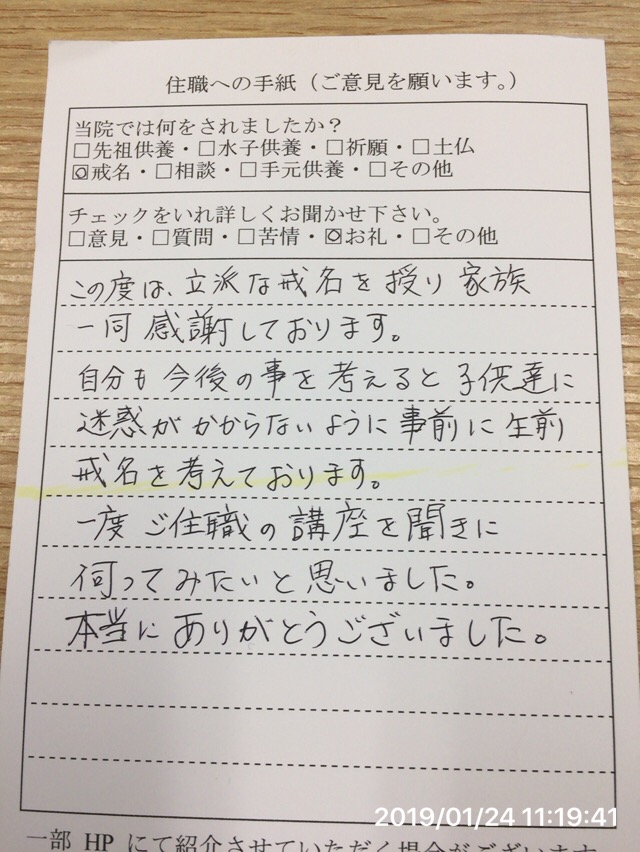 住職への手紙（ご意見を願います。）
当院では何をされましたか？
□先祖供養・□水子供養・□祈願・□土仏
☑戒名・□相談・□手元供養・□その他
チェックをいれ詳しくお聞かせ下さい。
□意見・□質問・□苦情・☑お礼・□その他
この度は、立派な戒名を授り家族
一同感謝しております。
自分も今後の事を考えると子供達に
迷惑がかからないように事前に生前
戒名を考えております。
一度ご住職の講座を聞きに
伺ってみたいと思いました。
本当にありがとうございました。
2019/01/24 11:19:41
一部 HP にて紹介させていただく場合がございます